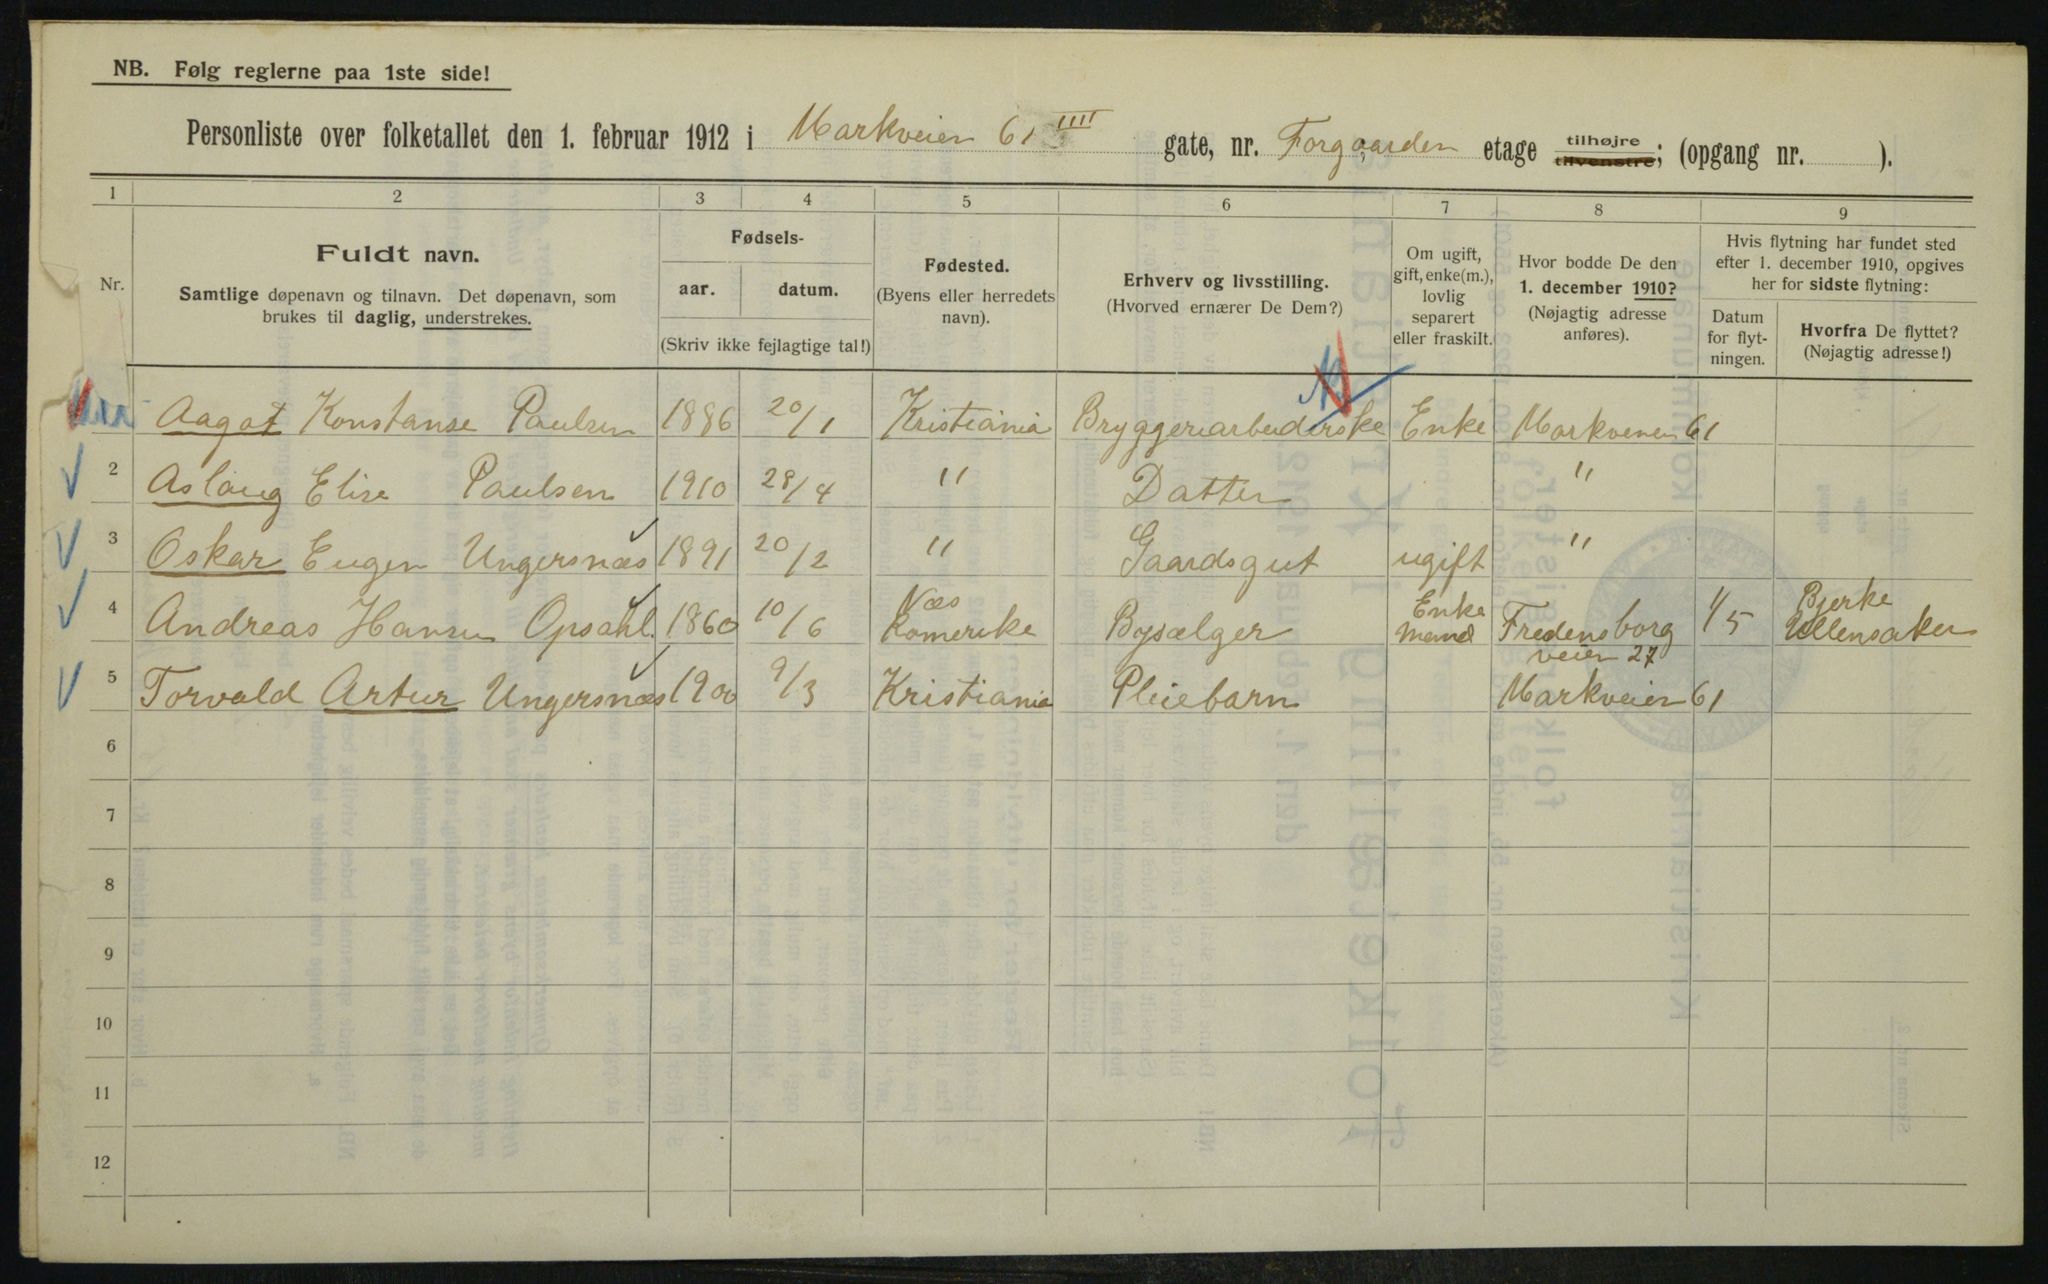 NB. Følg reglerne paa 1ste side!
Personliste over folketallet den 1. februar 1912 i Markveien 61 IIII gate, nr. Forgaarden etage tilhøjre tilvenstre; (opgang nr. ).
1 2 3 4 5 6 7 8 9
Nr.
Fuldt navn.
Samtlige døpenavn og tilnavn. Det døpenavn, som
brukes til daglig, understrekes.
Fødsels-
aar. datum.
(Skriv ikke fejlagtige tal!)
Fødested.
(Byens eller herredets
navn).
Erhverv og livsstilling.
(Hvorved ernærer De Dem?)
Om ugift,
gift, enke(m.),
lovlig
separert
eller fraskilt.
Hvor bodde De den
1. december 1910?
(Nøjagtig adresse
anføres).
Hvis flytning har fundet sted
efter 1. december 1910, opgives
her for sidste flytning:
Datum
for flyt-
ningen.
Hvorfra De flyttet?
(Nøjagtig adresse!)
Aagot Konstanse Paulsen 1886 20/1 Kristiania Bryggeriarbeiderske Enke Markveien 61
2 Aslaug Elise Paulsen 1910 28/4 " Datter "
3 Oskar Eugen Ungersnæs 1891 20/2 " Gaardsgut ugift "
4 Andreas Hansen Opsahl. 1860 10/6 Næs Romerike Bysælger Enke mand Fredensborg veien 27 1/5 Bjerke Ullensaker
5 Torvald Artur Ungersnæs 1900 9/3 Kristiania Pleiebarn Markveien 61
6
7
8
9
10
11
12